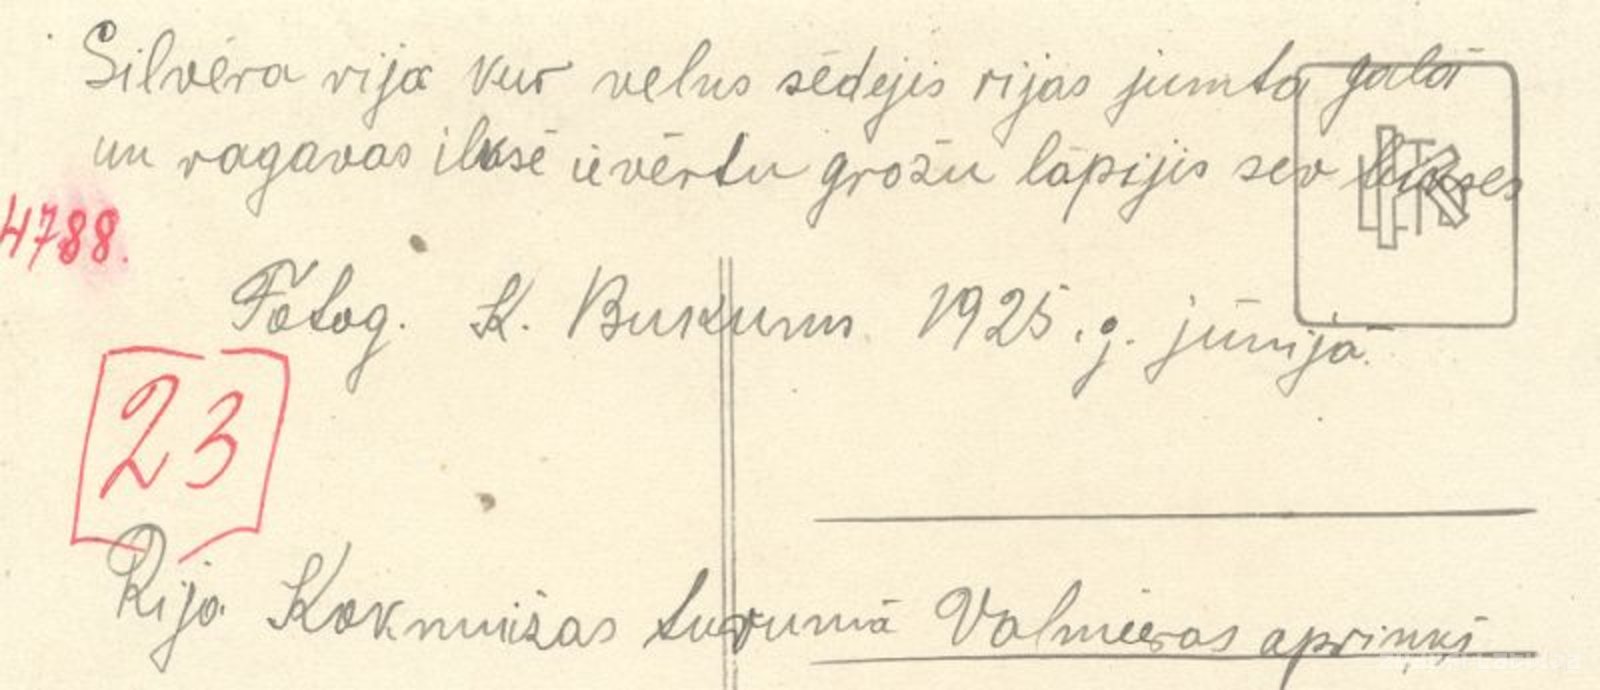 Silvēra rija kur velns sēdejis rijas jumta galā
un ragavas ilksē ievērtu grožu lāpijis sev bikses
4788.
Fotog. K. Bukums. 1925.g. jūnijā.
23
Rija Kokmuižas tuvumā Valmieras apriņķī